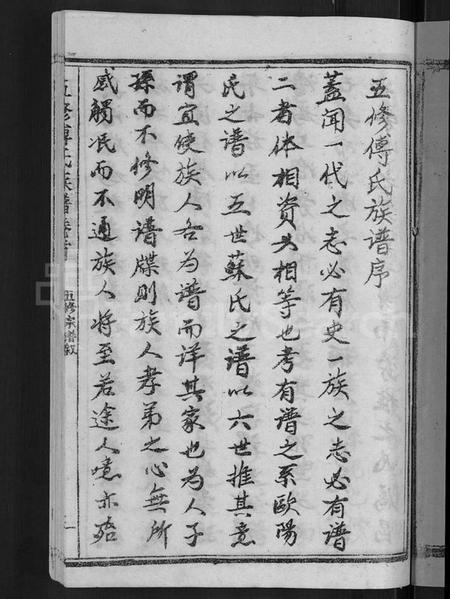 五修傅氏族譜序
蓋聞一代之志必有史一族之志必有譜
二者体相資共相等也考有譜之系歐陽
氏之譜以五世蘇氏之譜以六世推其意
謂宜使族人各為譜而详其家也為人子
孫而不修明譜牒則族人孝弟之心無所
感觸泯而不通族人將至若途人噫亦殆
五修傅氏族譜卷首
五修宗譜敘
一